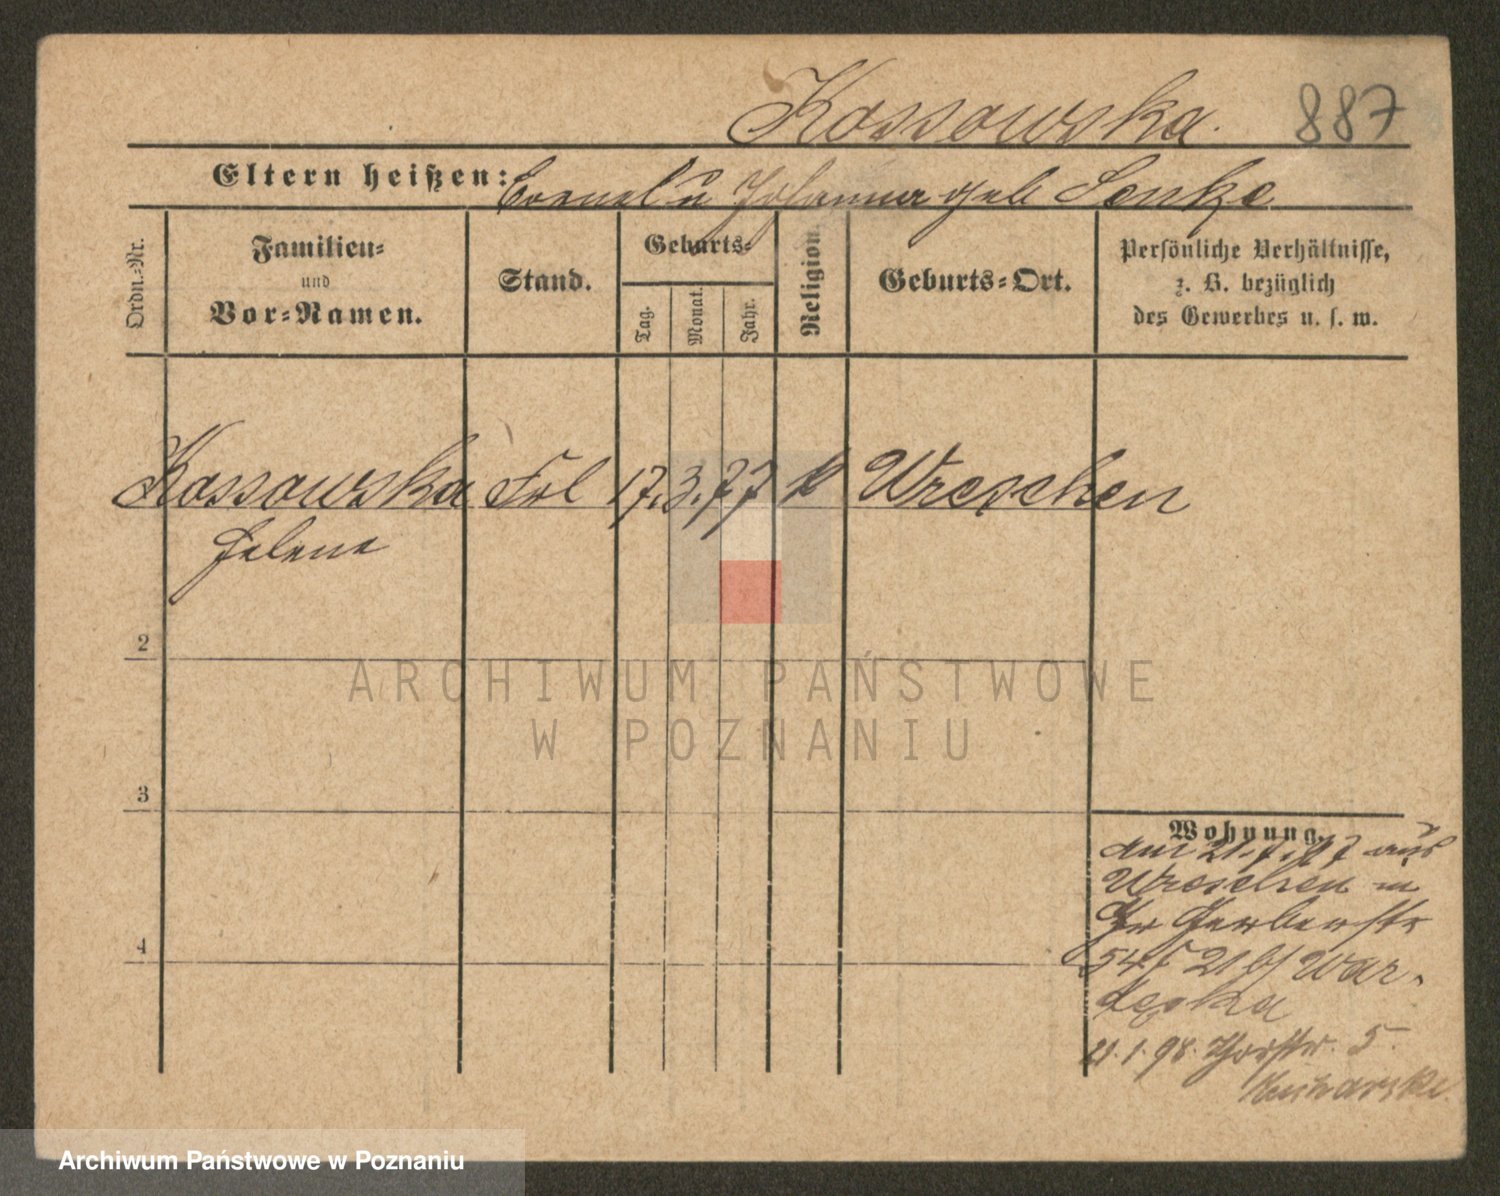 Kossowska. 887
Eltern heißen: Cornel u Johanna geb Lenke
Ordn.-Nr.
Familien-
und
Vor-Namen.
Stand.
Geburts-
Tag.
Monat.
Jahr.
Religion.
Geburts-Ort.
Persönliche Verhältnisse,
z. B. bezüglich
des Gewerbes u. s. w.
Kossowska Frl 17. 3. 77 k Wreschen
Helene
2
3
4
Wohnung.
am 21. 7. 97 aus
Wreschen in
Gr Gerberstr
54 b/ War-
21. 1. 98. Thorstr. 5.
ARCHIWUM PAŃSTWOWE
W POZNANIU
Archiwum Państwowe w Poznaniu